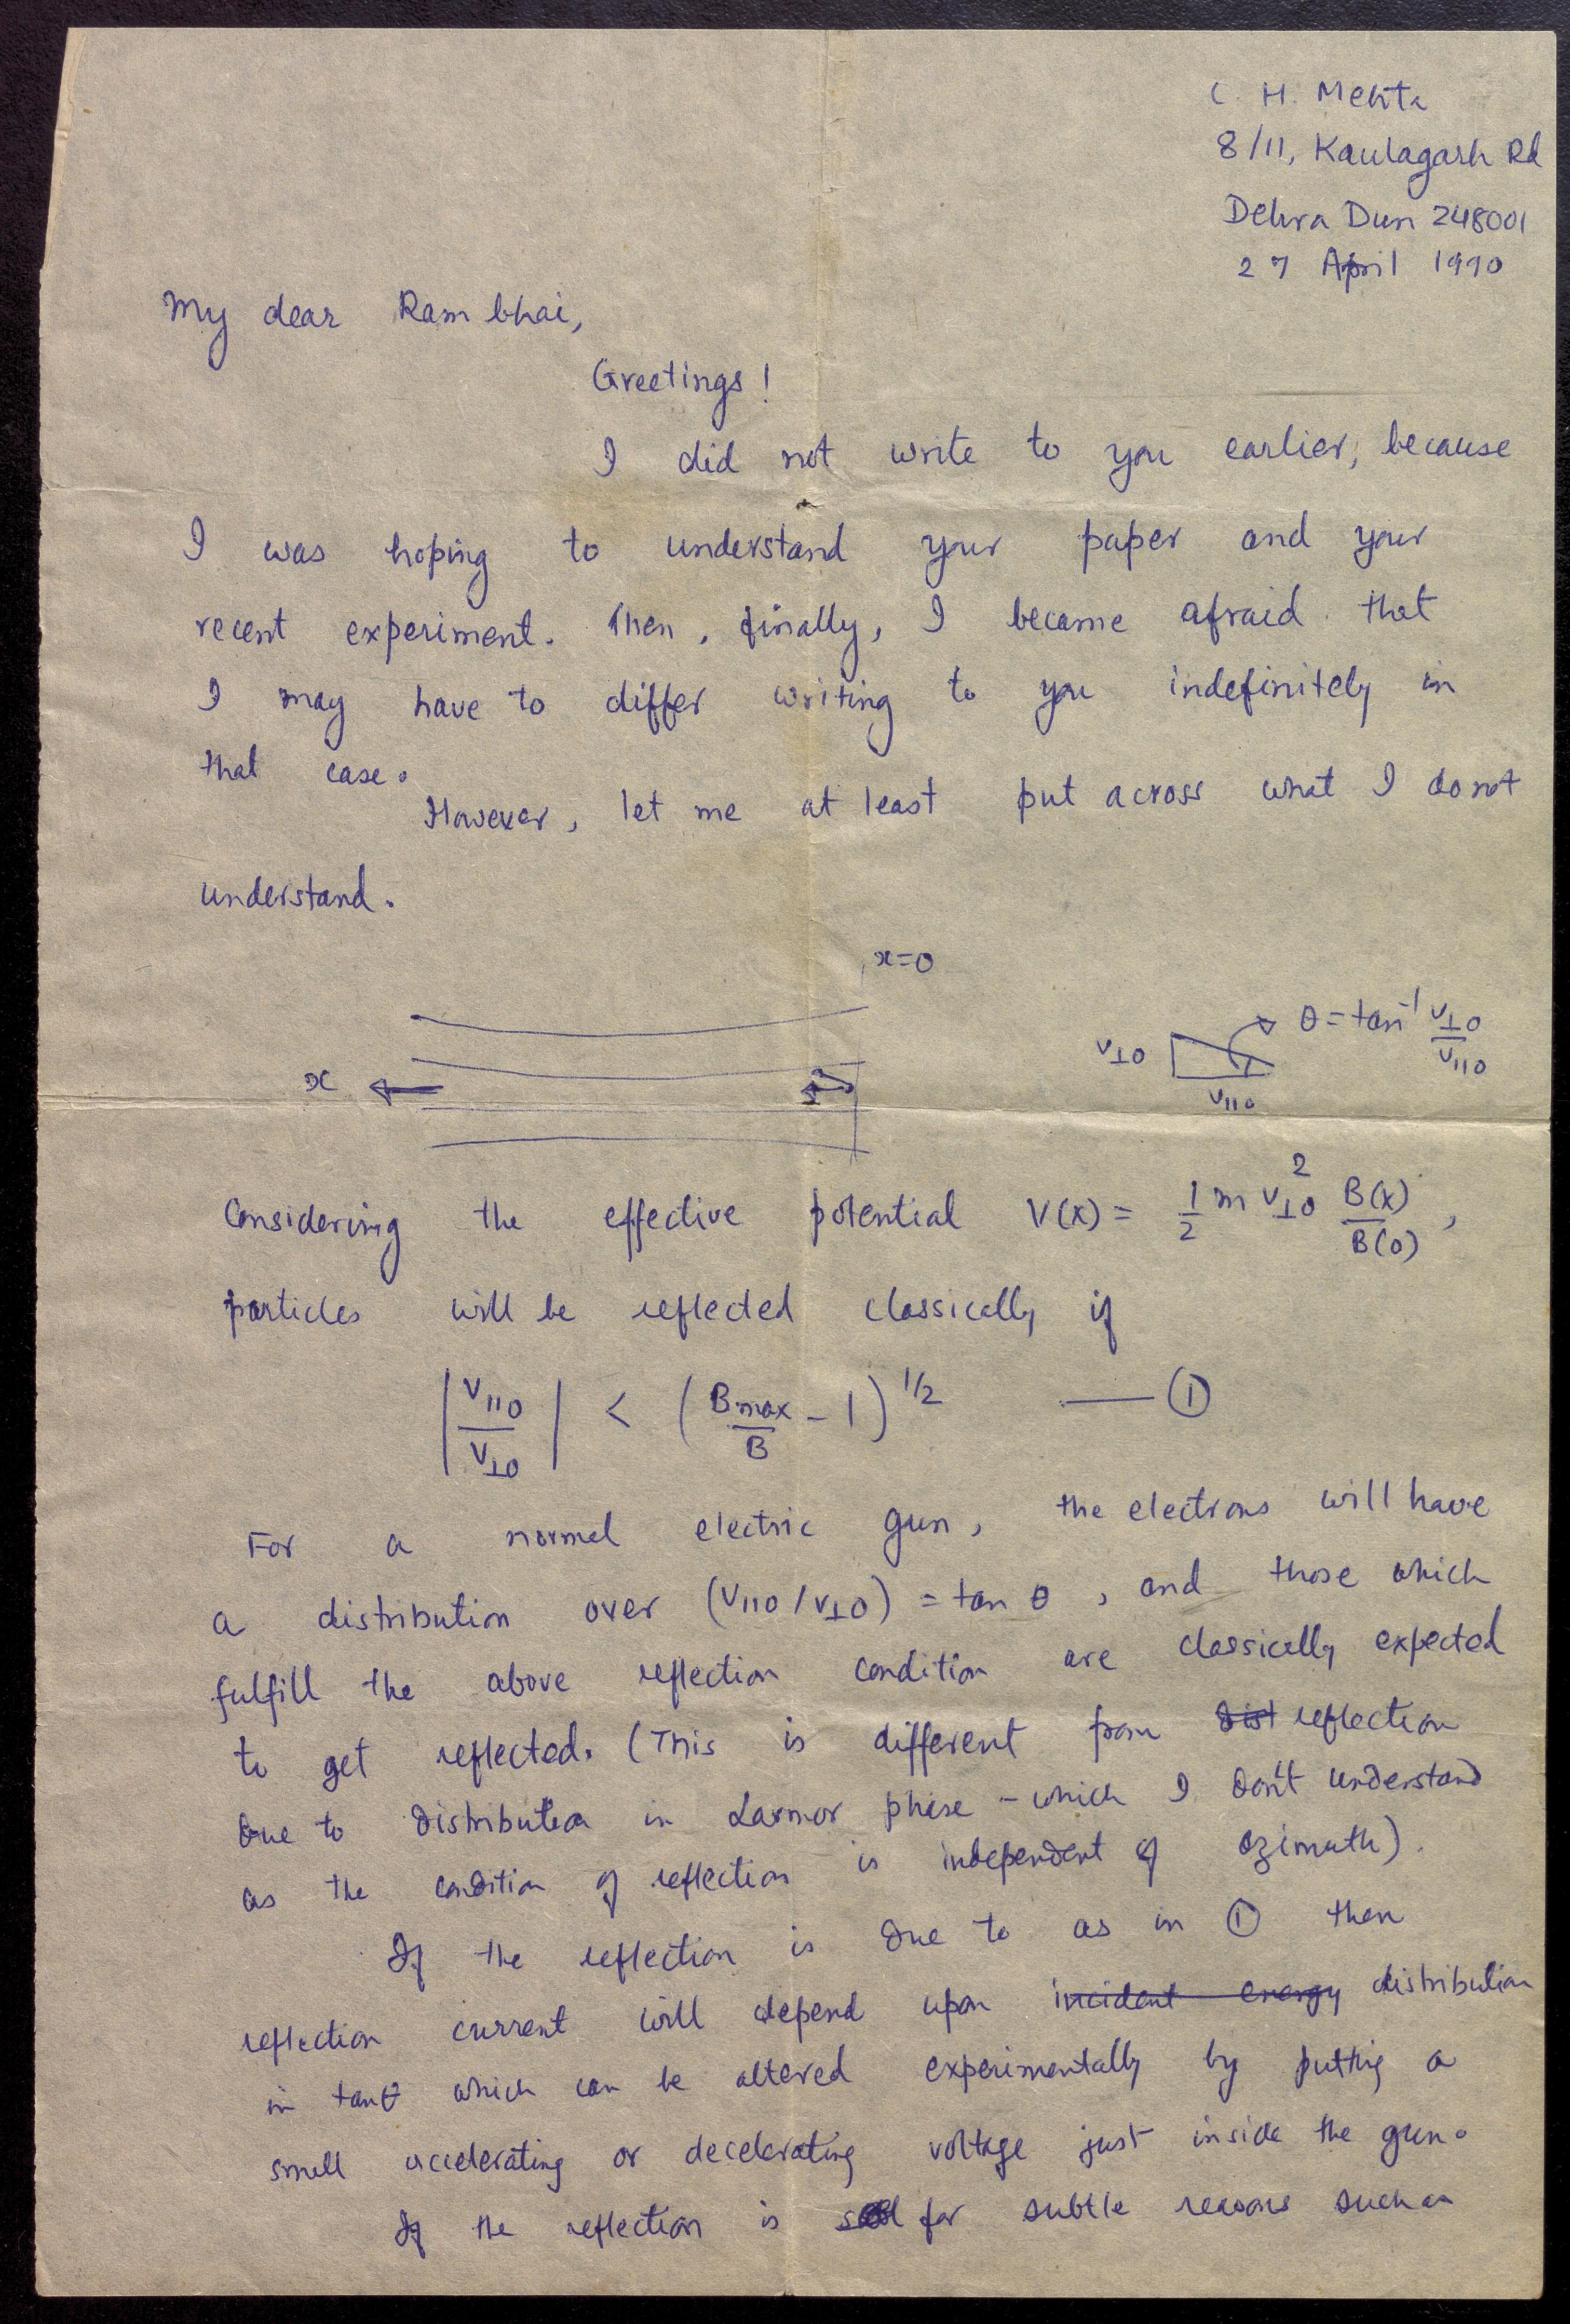 C. H. Mehta
8/11, Kaulagarh Rd
Dehra Dun 248001
27 April 1990
My dear Ram bhai,
Greetings!
I did not write to you earlier, because
I was hoping to understand your paper and your
recent experiment. Then, finally, I became afraid that
I may have to differ writing to you indefinitely in
that case.
However, let me at least put across what I do not
understand.
x=0
x
v⊥0
v||0
θ = tan⁻¹ v⊥0/v||0
Considering the effective potential V(x) = 1/2 m v⊥0² B(x)/B(0),
particles will be reflected classically if
|v||0/v⊥0| < (Bmax/B - 1)^1/2 —— ①
For a normal electric gun, the electrons will have
a distribution over (v||0/v⊥0) = tan θ, and those which
fulfill the above reflection condition are classically expected
to get reflected. (This is different from dist reflection
due to distribution in Larmor phase - which I don't understand
as the condition of reflection is independent of azimuth).
If the reflection is due to as in ① then
reflection current will depend upon incident energy distribution
in tanθ which can be altered experimentally by putting a
small accelerating or decelerating voltage just inside the gun.
If the reflection is for subtle reasons such as